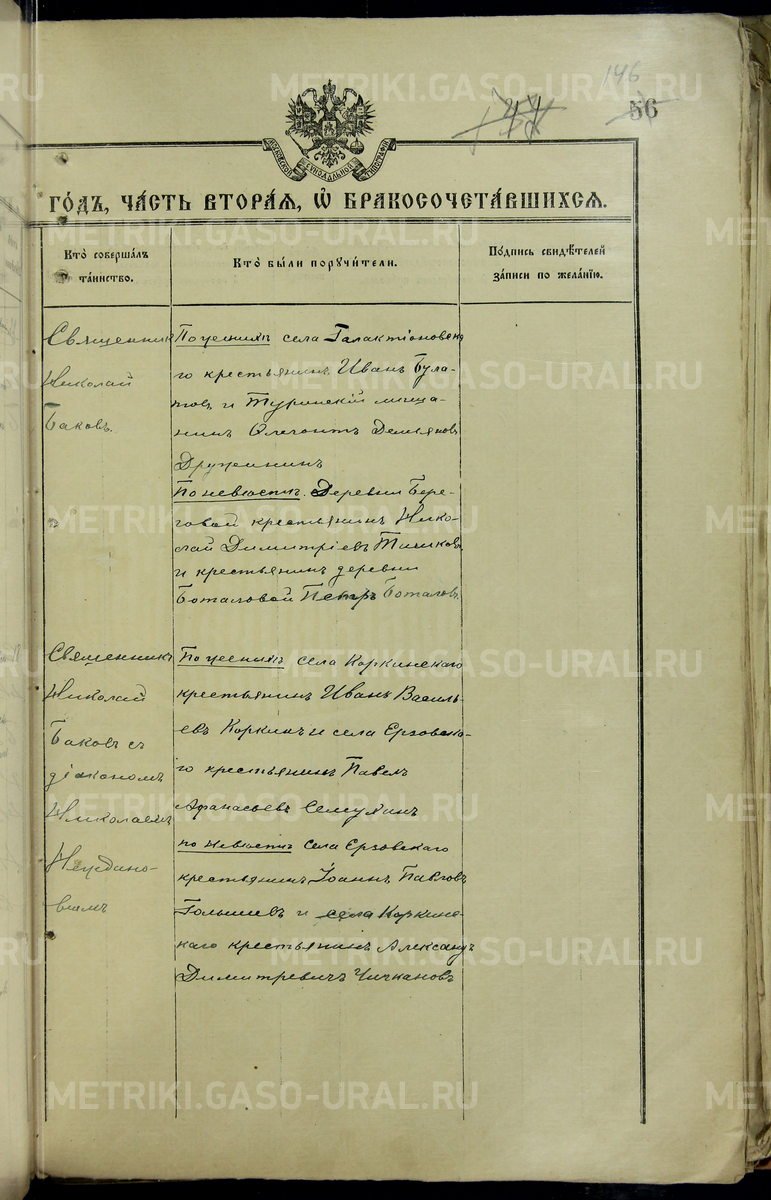 146
56
МОСКОВСКОЙ СѴНОДАЛЬНОЙ ТИПОГРАФІИ
ГО́ДЪ, ЧА́СТЬ ВТОРА́Я, Ѡ҆ БРАКОСОЧЕТА́ВШИХСЯ.
Кто̀ соверша́лъ
та́инство.
Кто̀ бы́ли порꙋчи́тели.
По́дпись свидѣ́телей
за́писи по жела́нїю.
Священникъ
Николай
Баковъ.
По женихѣ села Галактіоновска
го крестьянинъ Иванъ Була-
товъ и Туринскій мѣща-
нинъ Демьяновъ
Дружининъ
По невѣстѣ. Деревни Бере-
говой крестьянинъ Нико-
лай Димитріевъ Тишковъ
и крестьянинъ деревни
Боталовой Петръ Боталовъ
Священникъ
Николай
Баковъ съ
діакономъ
Николаемъ
По женихѣ села Коркинскаго
крестьянинъ Иванъ Василь-
евъ Коркинъ и села Ерзовска-
го крестьянинъ Павелъ
Афанасьевъ Семухинъ
по невѣстѣ села Ерзовскаго
крестьянинъ Іоаннъ Павловъ
Голышевъ и села Коркинс-
каго крестьянинъ Александръ
Димитревичъ Чичкановъ
METRIKI.GASO-URAL.RU